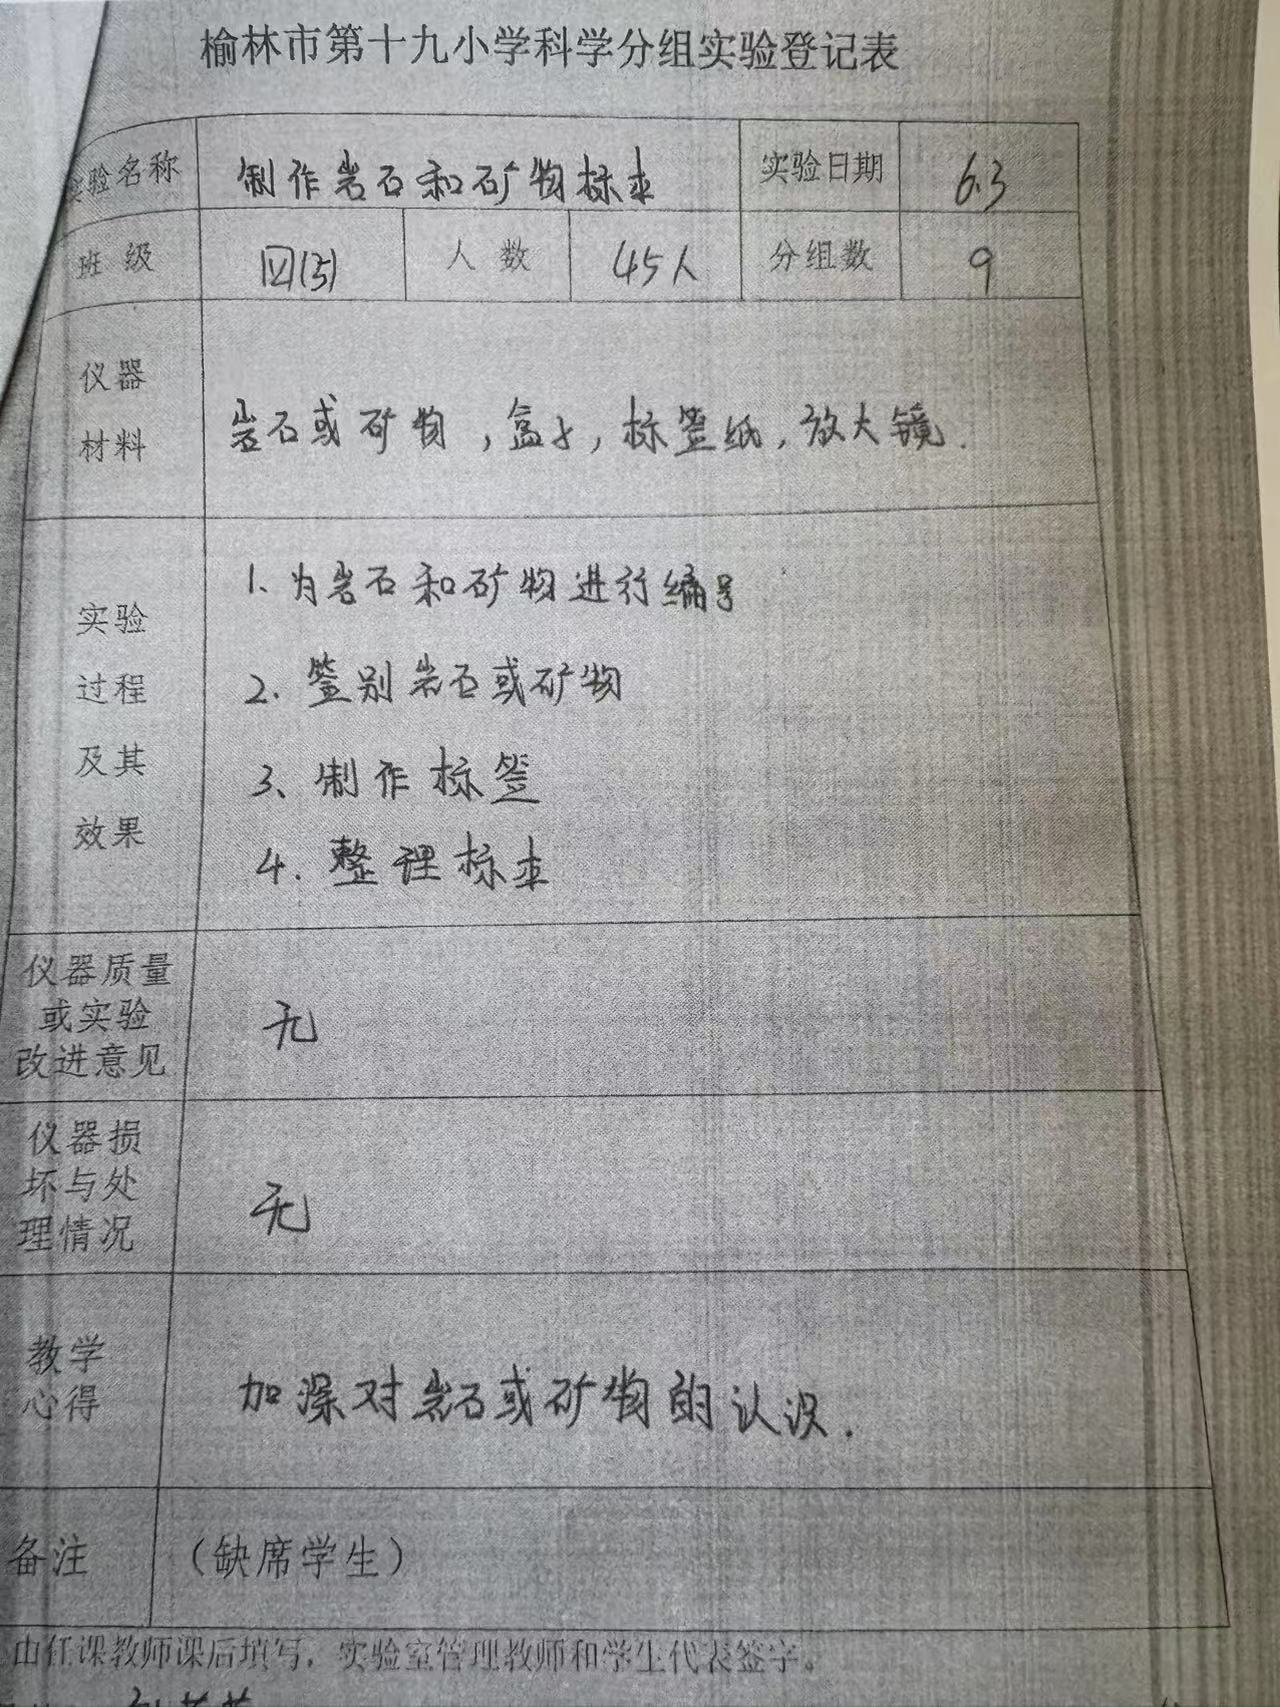 榆林市第十九小学科学分组实验登记表
实验名称 制作岩石和矿物标本 实验日期 6.3
班级 四(3) 人数 45人 分组数 9
仪器
材料
岩石或矿物,盒子,标签纸,放大镜.
实验
过程
及其
效果
1、为岩石和矿物进行编号
2、签别岩石或矿物
3、制作标签
4.整理标本
仪器质量
或实验
改进意见
无
仪器损
坏与处
理情况
无
教学
心得
加深对岩石或矿物的认识.
备注 (缺席学生)
由任课教师课后填写,实验室管理教师和学生代表签字。